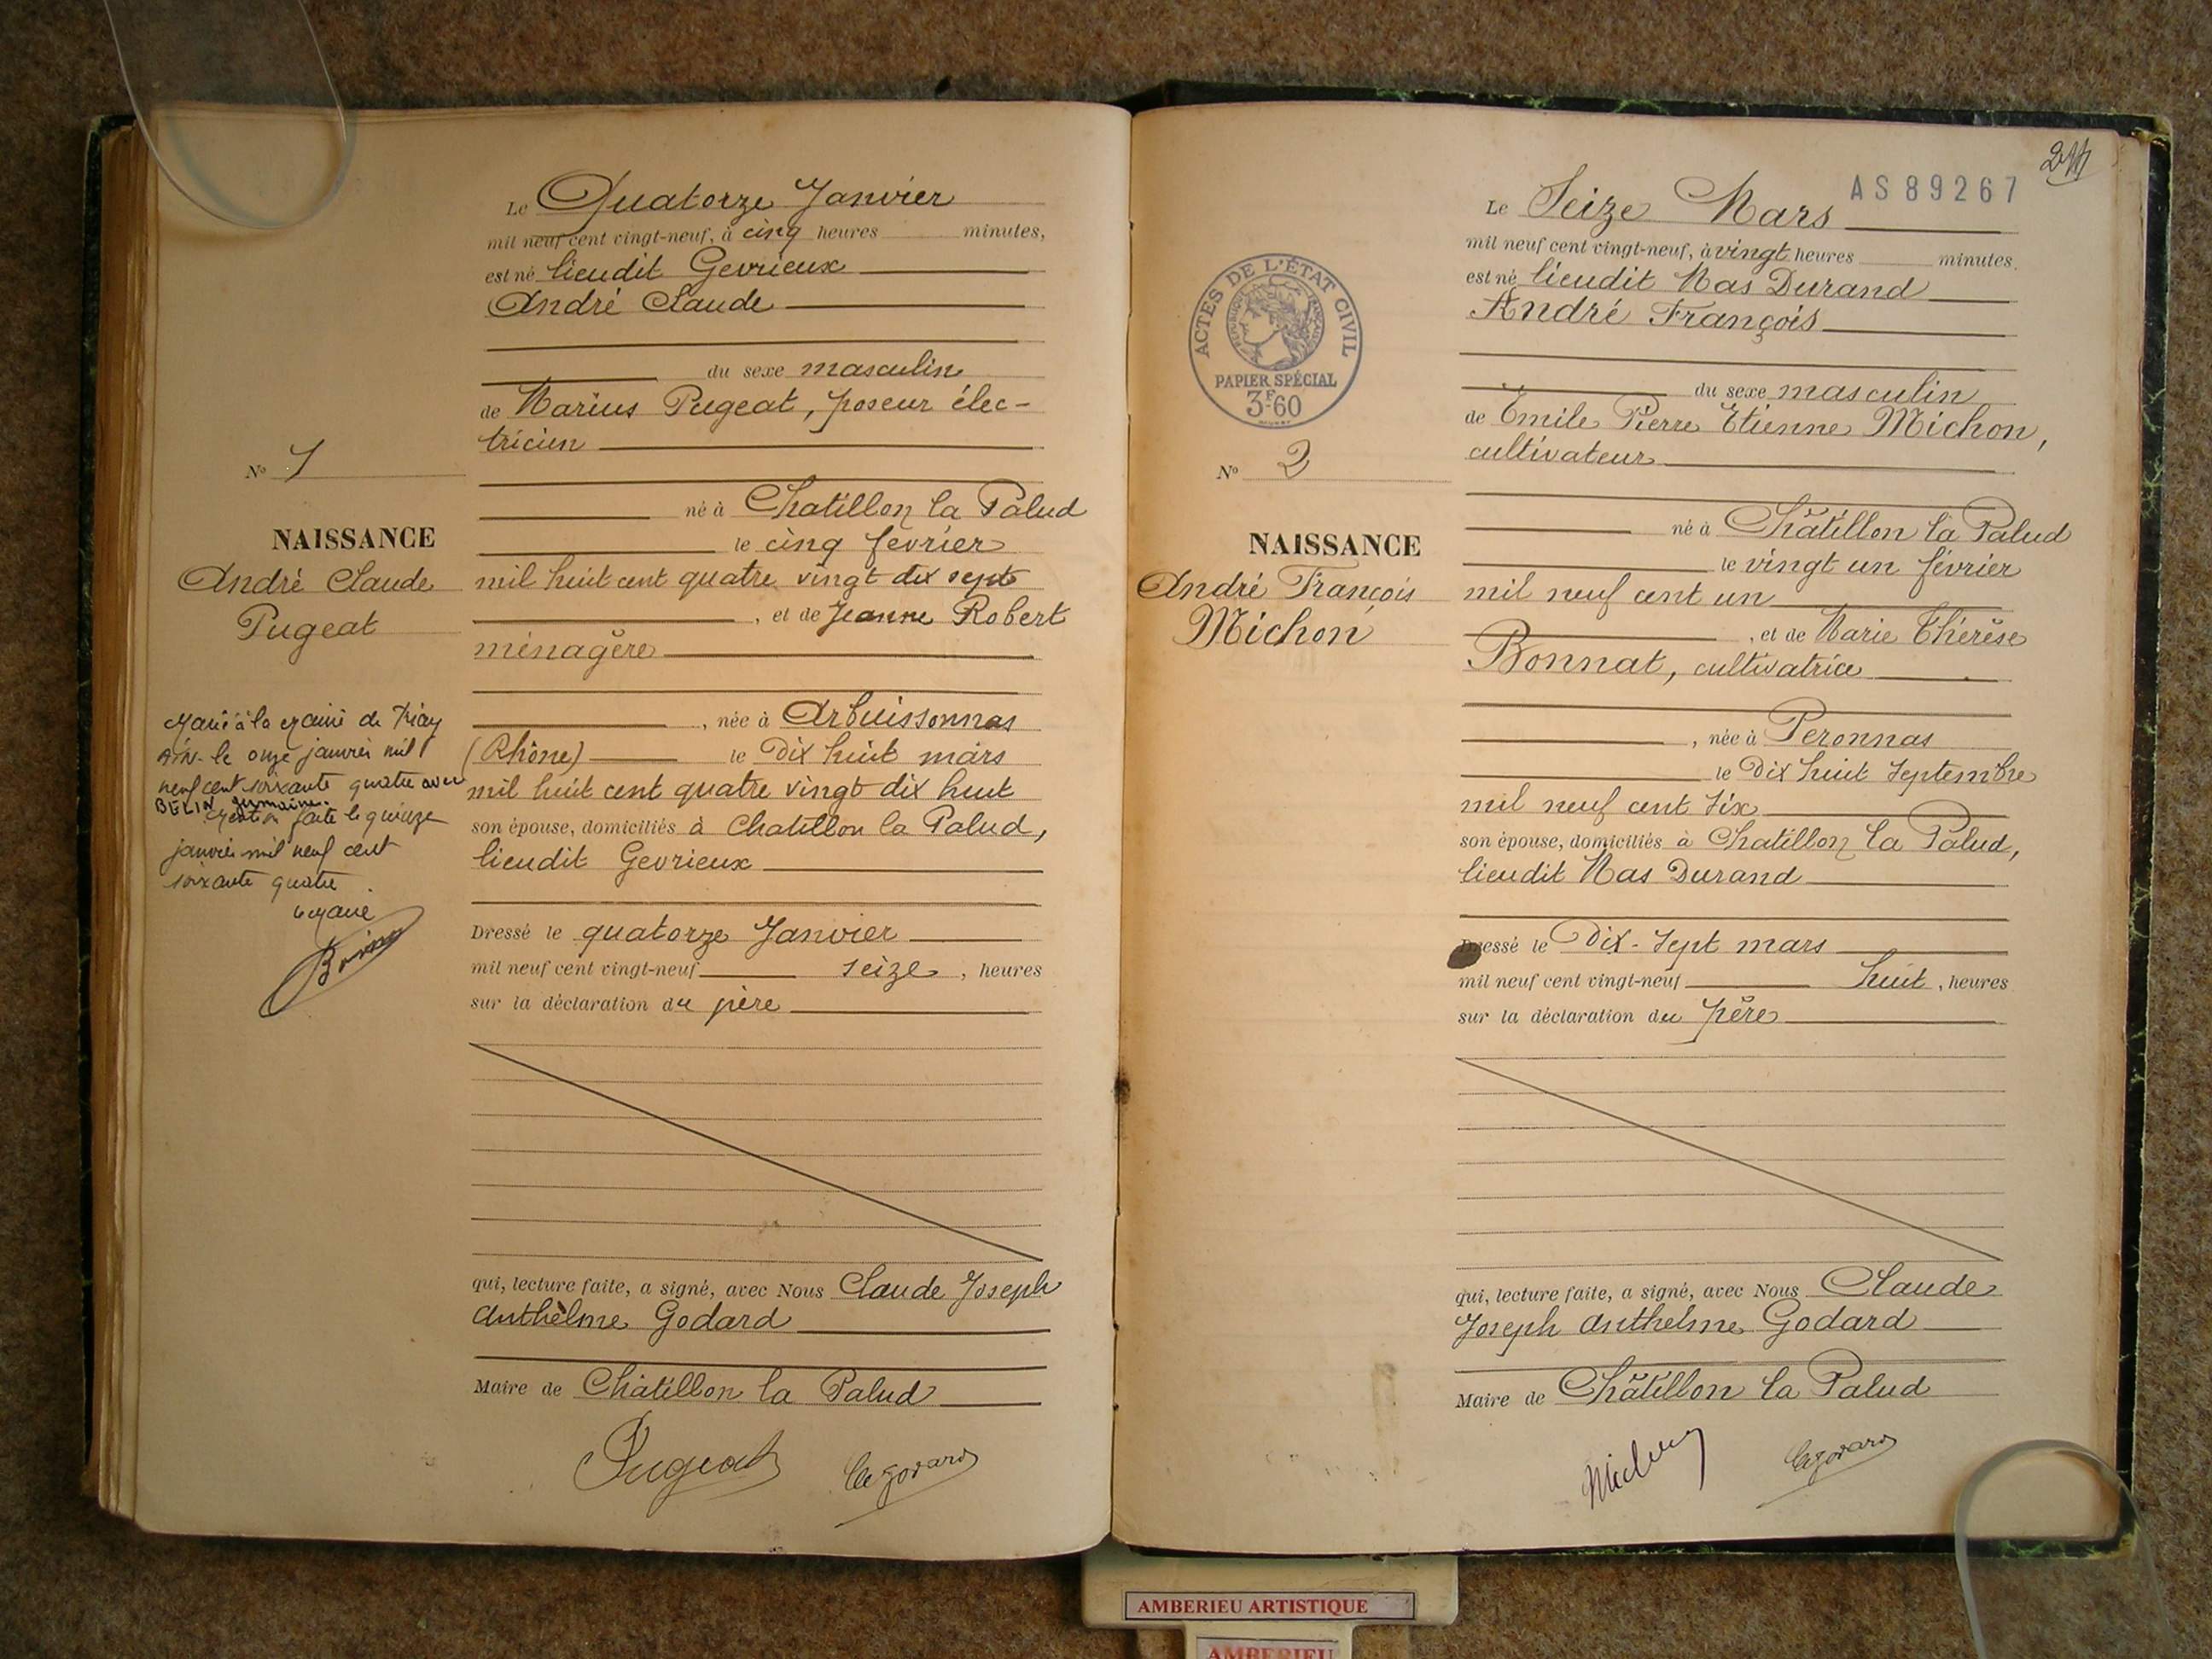 Le Quatorze Janvier
mil neuf cent vingt-neuf, à cinq heures minutes,
est né lieudit Gevrieux
André Claude
du sexe masculin
de Marius Pugeat, poseur élec-
tricien
né à Chatillon la Palud
le cinq février
mil huit cent quatre vingt dix sept
, et de Jeanne Robert
ménagère
, née à Arbuissonnas
(Rhône) le Dix huit mars
mil huit cent quatre vingt dix huit
son épouse, domiciliés à Chatillon la Palud,
lieudit Gevrieux
Dressé le quatorze Janvier
mil neuf cent vingt-neuf seize, heures
sur la déclaration du père
qui, lecture faite, a signé, avec Nous Claude Joseph
Anthèlme Godard
Maire de Châtillon la Palud
Pugeat
Godard
N° 1
NAISSANCE
André Claude
Pugeat
Marié à la mairie de
Ain le onze janvier mil
neuf cent soixante quatre avec
BELIN Germaine.
Mention faite le quinze
janvier mil neuf cent
soixante quatre
Le Maire
AS 89267
Le Seize Mars
mil neuf cent vingt-neuf, à vingt heures minutes.
est né lieudit Mas Durand
André François
du sexe masculin
de Emile Pierre Etienne Michon,
cultivateur
né à Châtillon la Palud
le vingt un février
mil neuf cent un
, et de Marie Thérèse
Bonnat, cultivatrice
, née à Peronnas
le Dix huit Septembre
mil neuf cent six
son épouse, domiciliés à Chatillon la Palud,
lieudit Mas Durand
Dressé le Dix-Sept mars
mil neuf cent vingt-neuf huit, heures
sur la déclaration du père
qui, lecture faite, a signé, avec Nous Claude
Joseph Anthelme Godard
Maire de Châtillon la Palud
Michon
Godard
ACTES DE L'ÉTAT CIVIL
RÉPUBLIQUE FRANÇAISE
PAPIER SPÉCIAL
3F60
N° 2
NAISSANCE
André François
Michon
AMBERIEU ARTISTIQUE
AMBERIEU